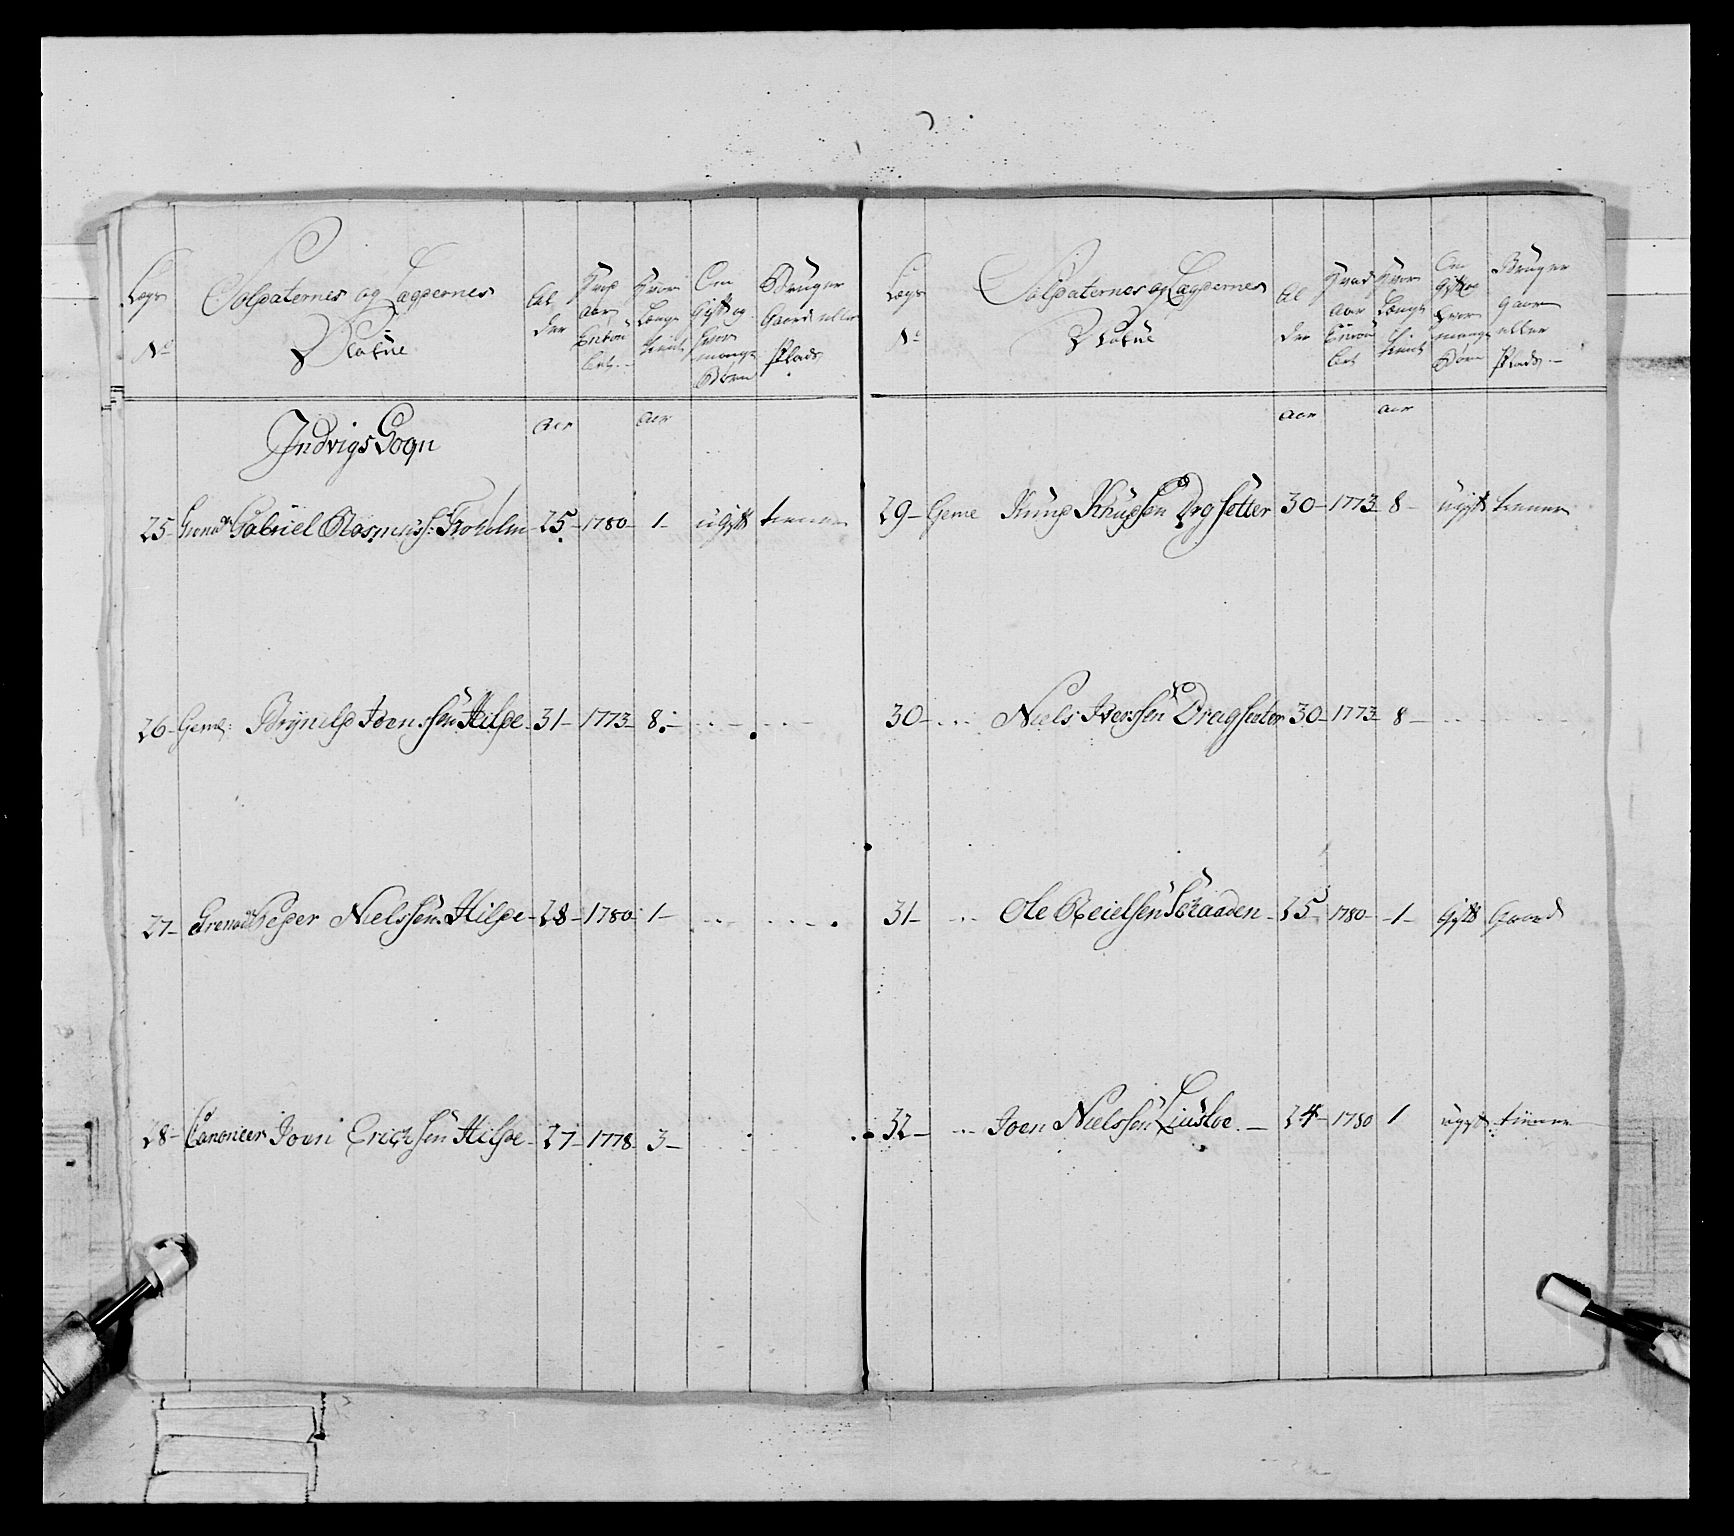 Lægs No
Soldaternes og Lægdernes Nafne
Al der
Hvad Aar Enroul lert
Hvor Længe tient
Om Gift og hvor mange Børn
Bruger Gaard eller Plads
Aar Aar
Indvigs Sogn
25 Grenad: Gabriel Rasmuss: Froholm 25 1780 1 ugift tienner
26 Geml: Brynild Joenssen Hilde 31 1773 8
27 Grenad: Peder Nielssen Hilde 28 1780 1
28 Canoneer Joen Erichsen Hilde 27 1778 3
Lægs No
Soldaternes og Lægdernes Nafne
Al der
Hvad Aar Enroul lert
Hvor Længe tient
Om Gift og hvor mange Børn
Bruger Gaar eller Plads
Aar Aar
29 Geme Knud Knudsen Dragsetter 30 1773 8 ugift tienner
30 Niels Iverssen Dragseter 30 1773 8
31 Ole Reielsen Schaaden 25 1780 1 Gift Gaard
32 Joen Nielssen 24 1780 1 ugift tienner